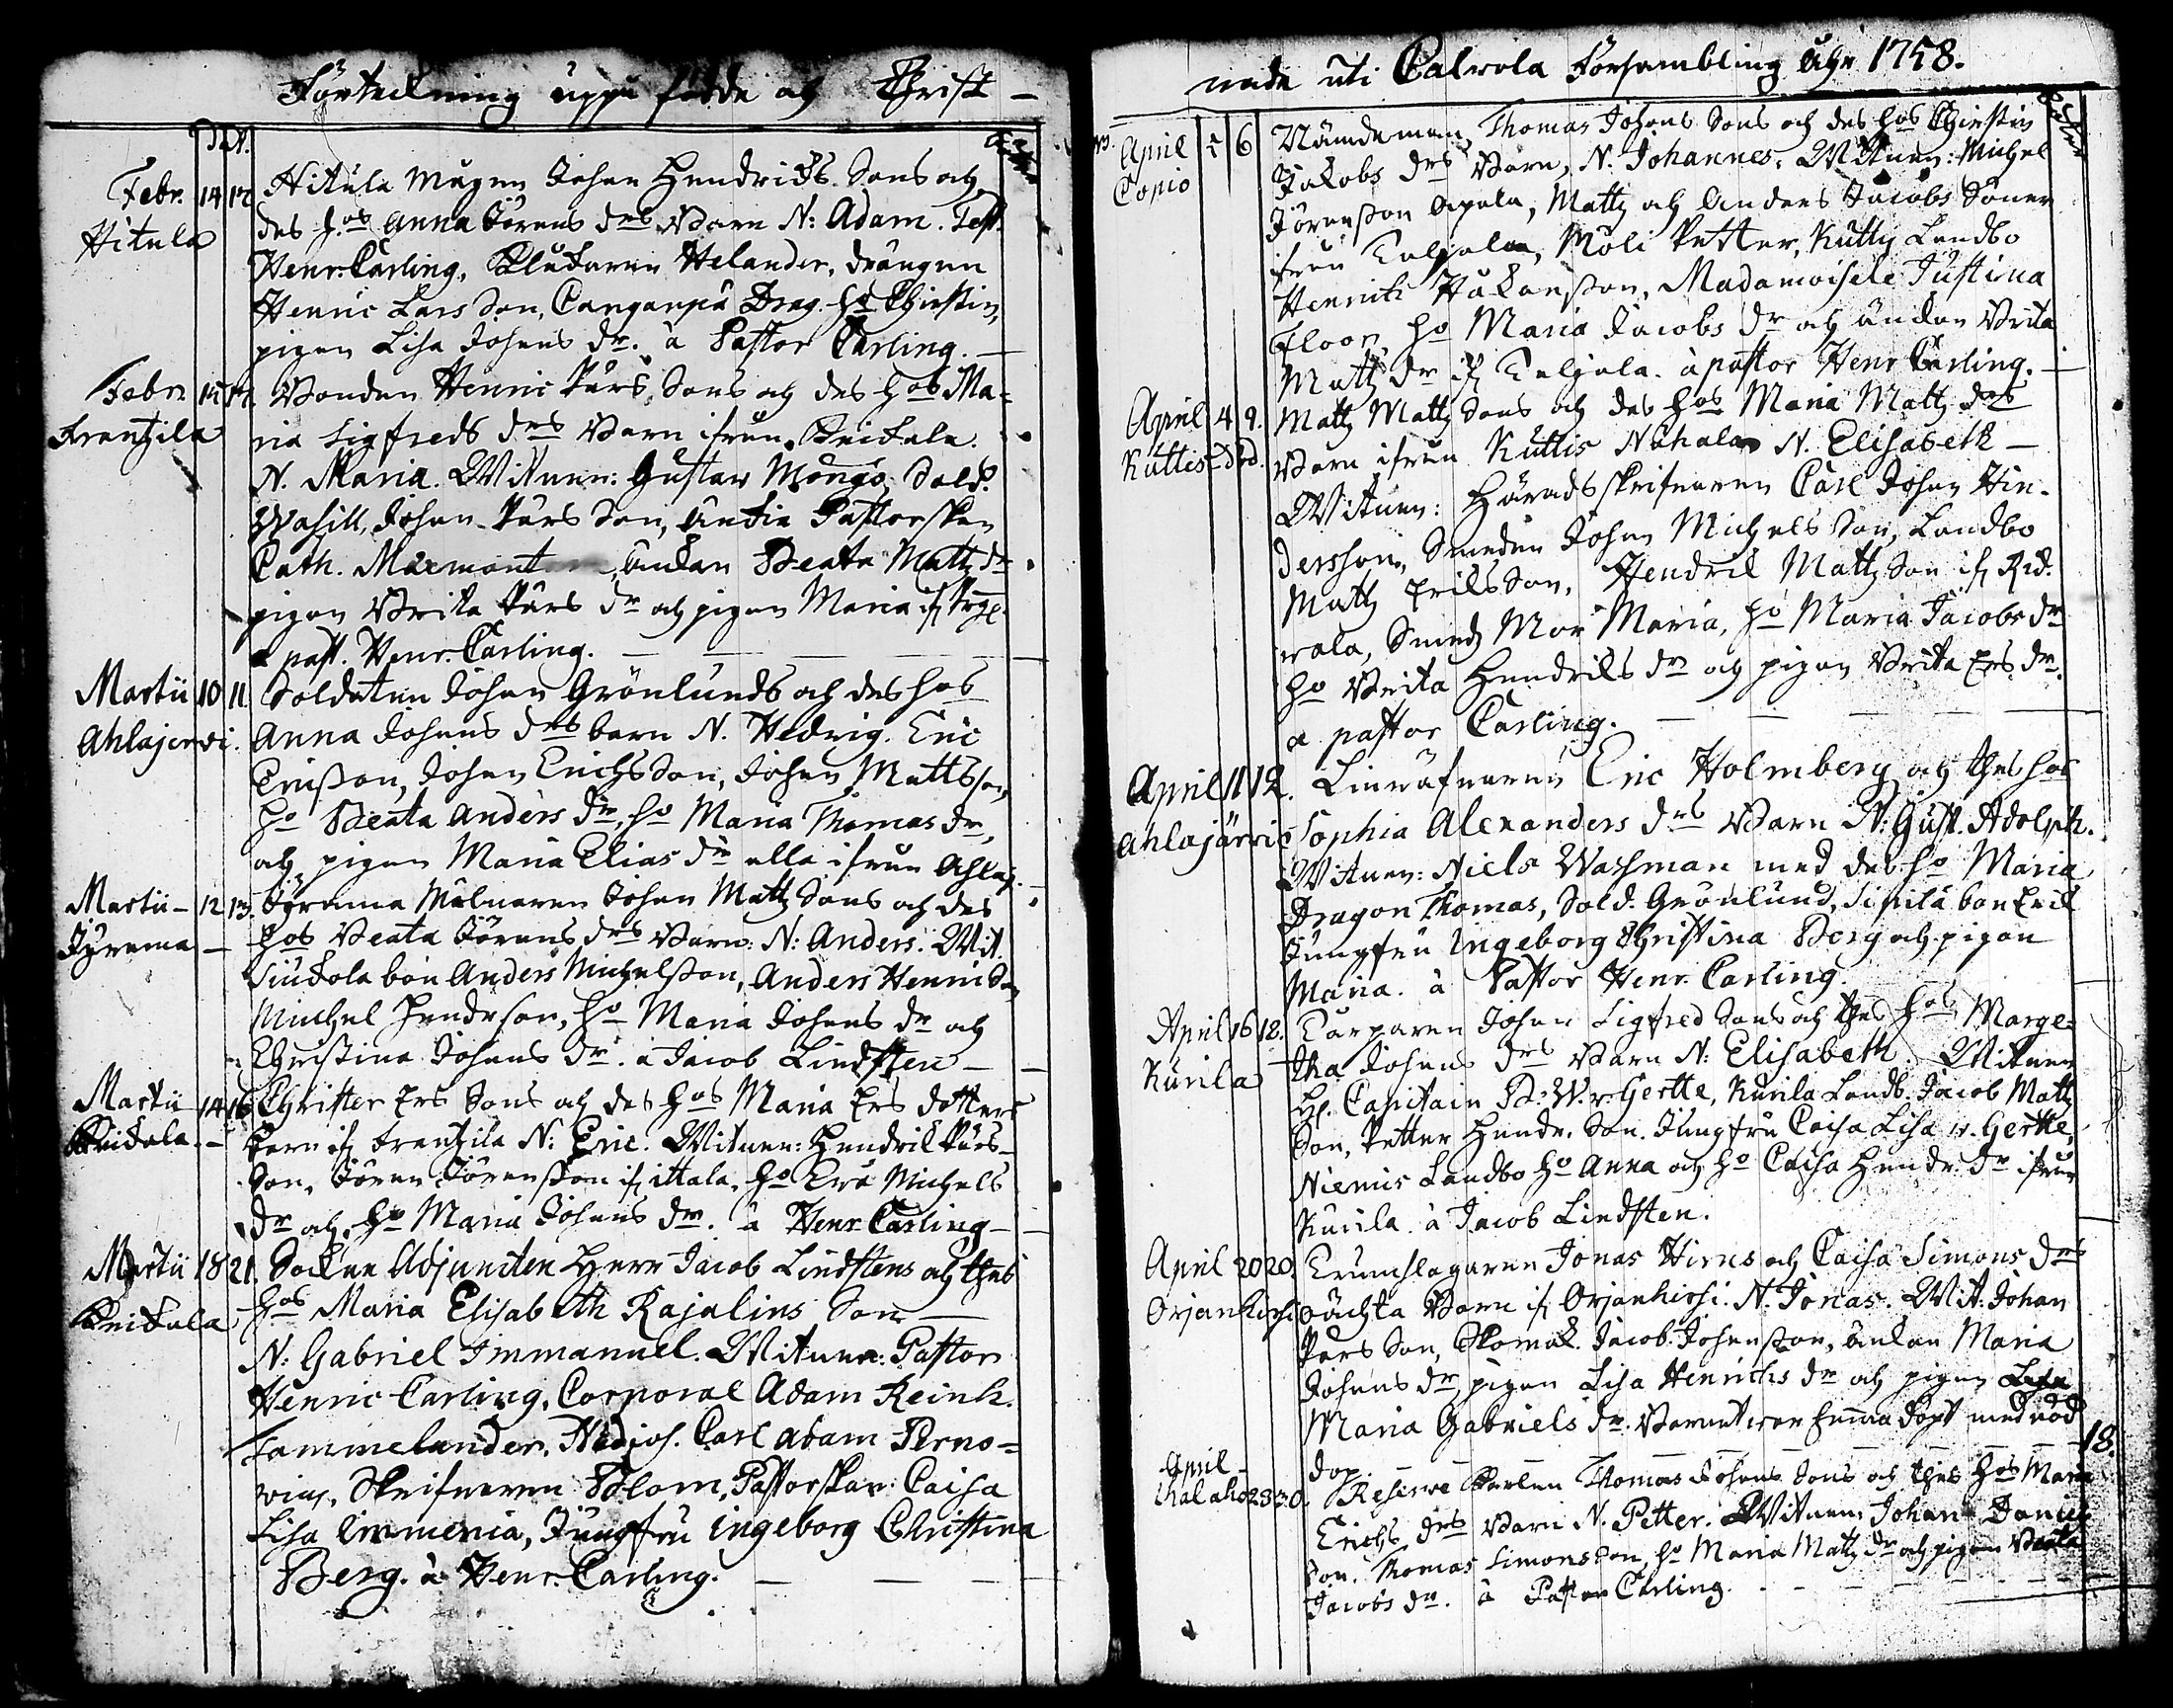 Förteckning uppå födde och Christ-
Febr. 14 17. Hitula Mågen Johan Hendrichs Sons och
Hitula des h:os Anna Jörans drs Barn N: Adam. Test.
Henr: Carling, Klåckaren Helander, drängen
Henric Lars Son, Drag. ho Christin,
pigan Lisa Johans dr. à Pastor Carling.
Febr. 17. Bonden Henric Pärs Sons och des hos Ma-
Frantzila ria Sigfreds drs Barn ifrån
N. Maria. Witnen: Gustav Sold.
Johan Pärs Son, Änkie Pastorskan
Cath. änkan Beata Matz dr
pigan Brita Pärs dr och pigan Maria
a past. Henr. Carling.
Martii 10 11 Soldaten Johan Grönlunds och des hos
Ahlajerwi. Anna Johans drs barn N. Hedvig. Eric
Ericsson, Johan Erichs Son, Johan Mattsson,
ho Beata Anders dr, ho Maria Thomas dr,
och pigan Maria Elias dr alla ifrån Ahlaj.
Martii - 12 13. Jyrama Mölnaren Johan Matz Sons och des
Jyrama - hos Beata Jörans drs Barn: N: Anders. Wit.
bon Anders Michelsson, Anders Henric Son
Michel Hendrson, ho Maria Johans dr och
Christina Johans dr. à Jacob Lindsten -
Martii 14 16 Christer Ers Sons och des hos Maria Ers dotters
Keikala. - Barn if. Frantzila N: Eric. Witnen: Hendrik Pärs-
Son, Jöran Jöransson if. ittala, ho Ewa Michels
dr och ho Maria Johans dr. à Henr. Carling -
Martii 18 21. Sockne Adjuncten Herr Jacob Lindstens och thes
Keikala hos Maria Elisabeth Rajalins Son -
N: Gabriel Immanuel. Witnen: Pastor
Henric Carling, Corporal Adam Reinh.
Tammelander, Carl Adam Perno=
vius, Skrifvaren Blom, Pastorskan: Caisa
Lisa Emmenia, Jungfru Ingeborg Christina
Berg. à Henr. Carling.
nade uti Calvola Försambling Åhr 1758.
April 6 Nämdeman Thomas Johans Sons och des hos Christin
Copio Jakobs drs Barn, N. Johannes. Witnen: Michel
Jöransson Matz och Anders Jacobs Söner
ifrån Taljala, Petter, Kutty Landbo
Henrich Håkansson, Madamoisele Justina
Floor, ho Maria Jacobs dr och änkan Brita
Matz dr if. Taljala. à pastor Henr Carling.
April 4 9. Matz Matz Sons och des hos Maria Matz drs
Kuttis Barn ifrån Kuttis N. Elisabeth -
Witnen: Häradsskrifvaren Carl Johan Hin-
dersson, Smeden Johan Michels Son, Landbo
Matz Eriks Son, Hendrik Matz Son if.
Smeds Mor Maria, ho Maria Jacobs dr
ho Brita Hendriks dr och pigan Brita Ers dr.
a pastor Carling.
April 11 12. Linväfvaren Eric Holmberg och thes hos
Ahlajärwi Sophia Alexanders drs Barn N: Gust. Adolph.
Witnen: Niels Washman med des ho Maria
Dragon Thomas, Sold. Grönlund, Sipilä bon Erik
Jungfru Ingeborg Christina Berg och pigan
Maria. à Pastor Henr. Carling.
April 16 18. Torparen Johan Sigfred Sons och thes hos Marge=
Kurila tha Johans drs Barn N: Elisabeth. Witnen
H. Capitain B: W. v. Gertte, Kurila Landb. Jacob Matz
Son, Petter Hendr. Son. Jungfru Caisa Lisa v. Gertte,
Niemis Landbo ho Anna och ho Caisa Hendr. dr ifrån
Kurila à Jacob Lindsten.
April 20 20. Trumslagaren Jonas Hirns och Caisa Simons drs
Orjanhirsi oächta Barn if. Orjanhirsi. N. Jonas. Wit. Johan
Pärs Son, Skomak. Jacob Johansson, änkan Maria
Johans dr, pigan Lisa Henrichs dr och pigan
Maria Gabriels dr. Barnet war hemma döpt med nöd
dop. 18.
April - 28 30. Reserve Karlen Thomas Johans Sons och thes hos Maria
Erichs drs Barn N. Petter. Witnen Johan Daniel
Son. Thomas Simonsson, ho Maria Matz dr och pigan Beata
Jacobs dr. à Pastor Carling.